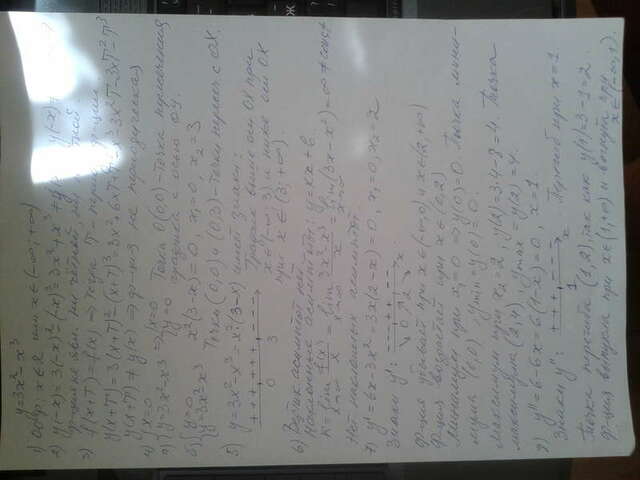 y=3x²-x³
1) ООФ: x∈R или x∈(-∞,+∞)
2) y(-x)=3(-x)²-(-x)³=3x²+x³≠y(x),
ф-ция не явл. ни чётной, ни
3) f(x+T)=f(x) ⇒ тогда T - период функции
y(x+T)=3(x+T)²-(x+T)³=3x²+6xT+3T²-x³-3x²T-3xT²-T³
y(x+T)≠y(x) ⇒ ф-ция не периодическая
4) {x=0 {x=0 Точка O(0,0) - точка пересечения
{y=3x²-x³ {y=0 графика с осью OY.
5) {y=0 x²(3-x)=0, x₁=0, x₂=3
{y=3x²-x³ Точки (0,0) и (0,3) - точки перес. с OX.
5) y=3x²-x³=x²(3-x) имеет знаки:
+++++ ++++ --- График выше оси OX при
0 3 x∈(-∞,3) и ниже оси OX
при x∈(3,+∞).
6) асимптот нет.
Наклонные асимптоты: y=kx+b
k=lim f(x)/x=lim (3x²-x³)/x=lim(3x-x²)=∞≠const
x→∞ x→∞ x→∞
Нет наклонных асимптот
7) y'=6x-3x²=3x(2-x)=0, x₁=0, x₂=2
Знаки y': ---++---
0 2 x
Ф-ция убывает при x∈(-∞,0) и x∈(2,+∞)
Ф-ция возрастает при x∈(0,2)
Минимум при x₁=0 ⇒ y(0)=0. Точка мини-
мума (0,0), ymin=y(0)=0.
Максимум при x₂=2, y(2)=3·4-8=4. Точка
максимума (2,4), ymax=y(2)=4.
y''=6-6x=6(1-x)=0, x=1
Знаки y'': +++ --- Перегиб при x=1.
1 x
Точка перегиба (1,2), так как y(1)=3-1=2.
Ф-ция выпукла при x∈(1,+∞) и вогнута при
x∈(-∞,1).